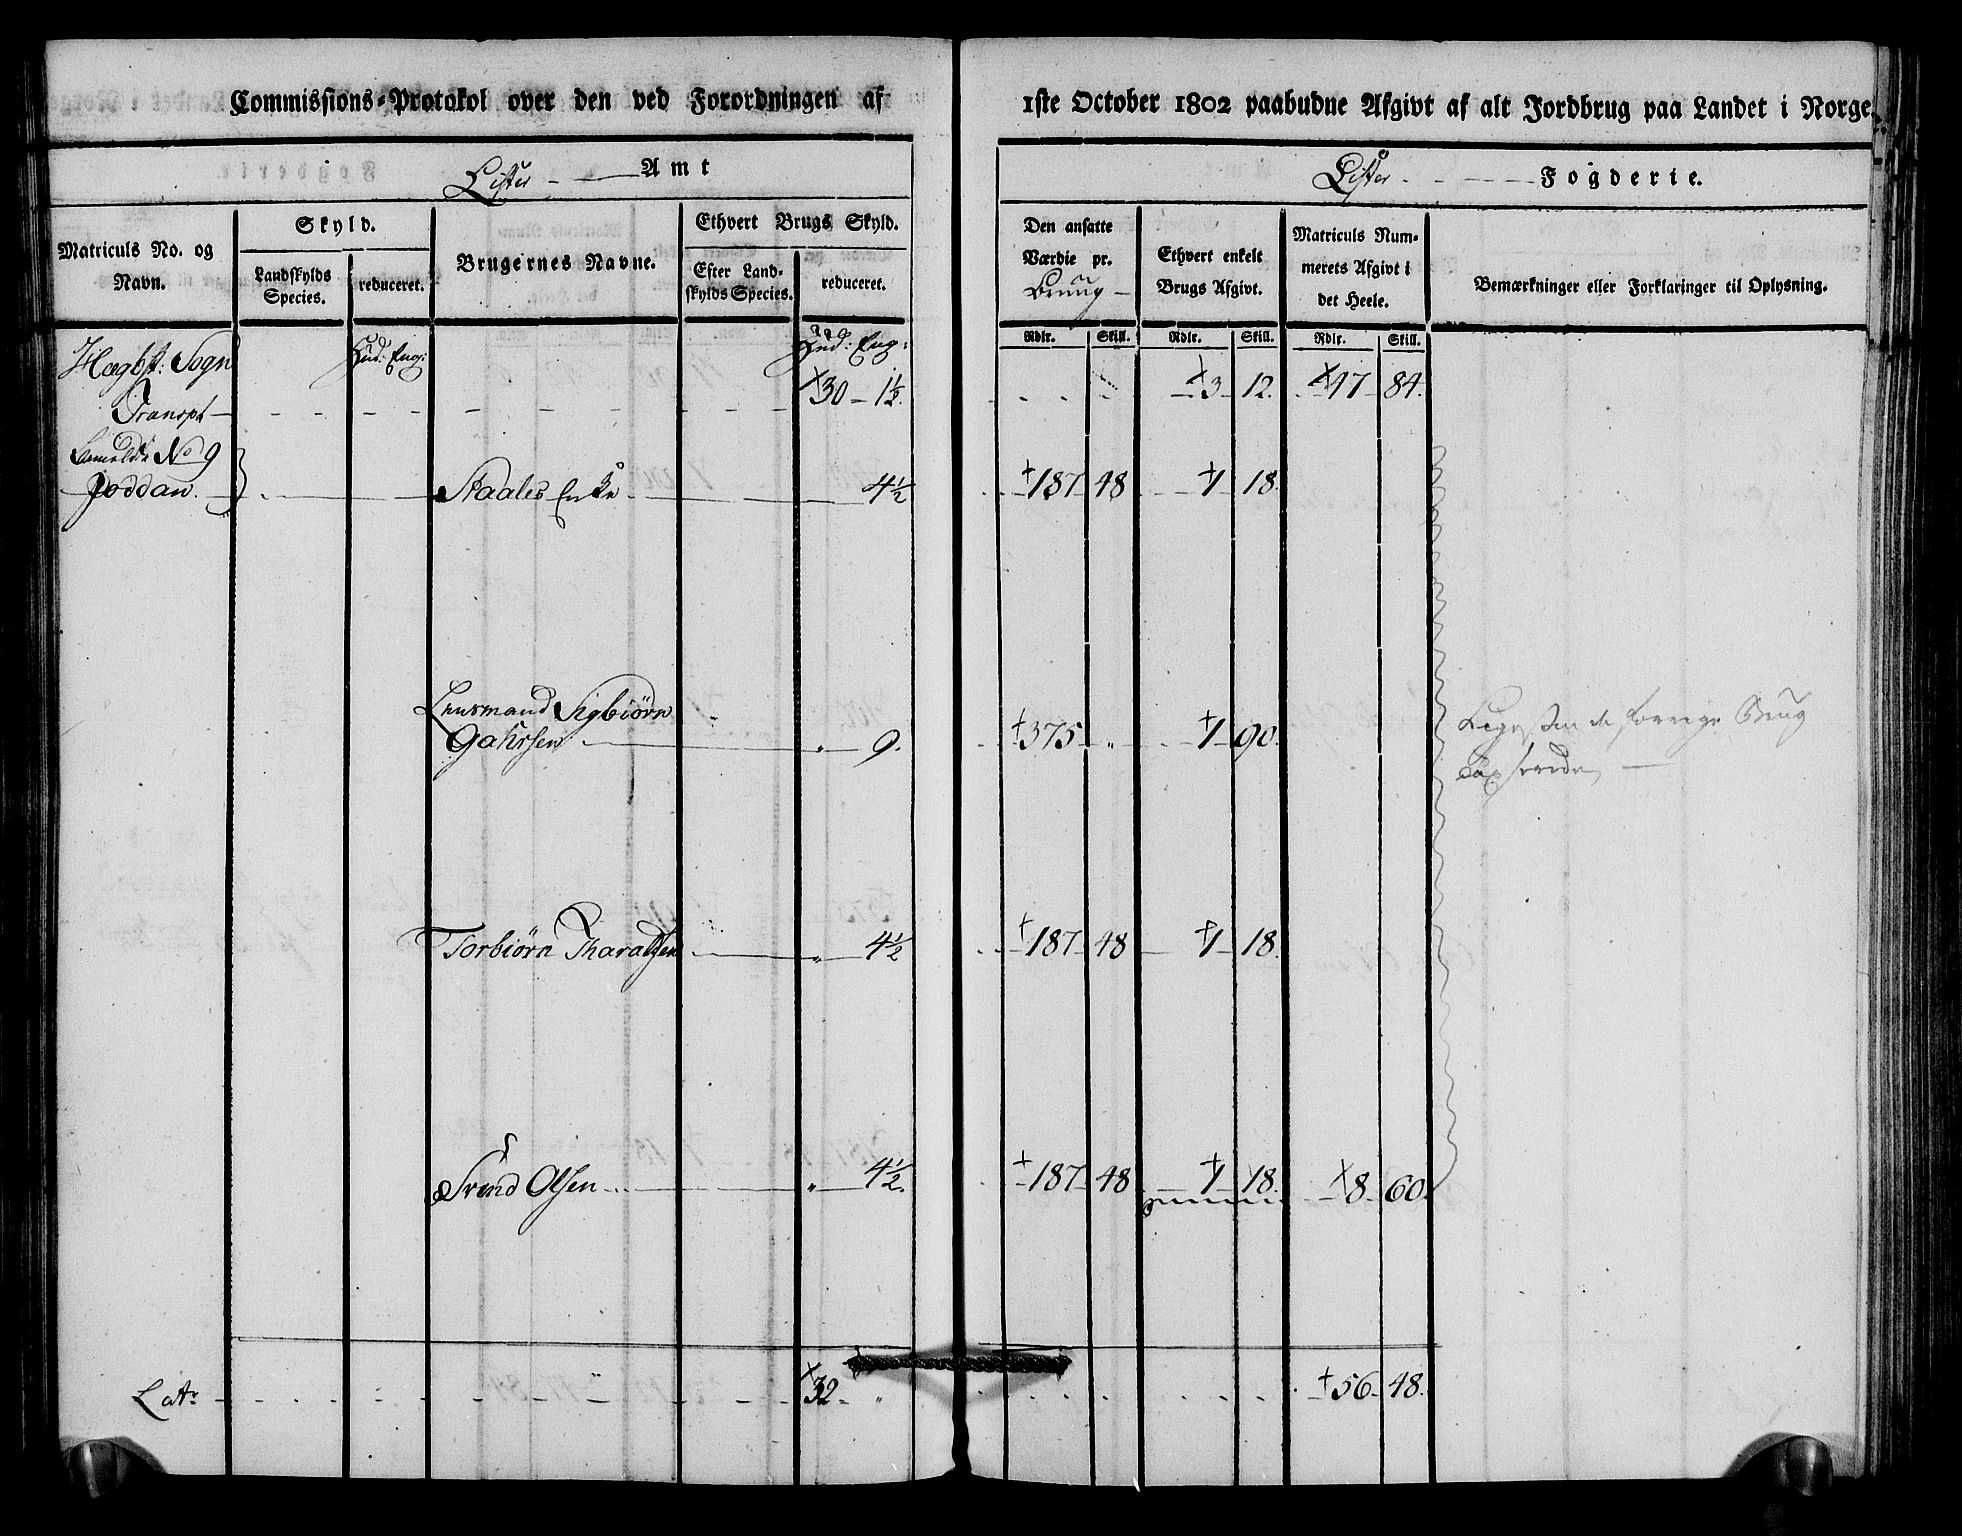 Commissions-Protokol over den ved Forordningen af
1ste October 1802 paabudne Afgivt af alt Jordbrug paa Landet i Norge.
Lister Amt
Lister Fogderie.
Matriculs No. og Navn.
Skyld.
Landskylds Species.
reduceret.
Brugernes Navne.
Ethvert Brugs Skyld.
Efter Landskylds Species.
reduceret.
Den ansatte Værdie pr. Bruug
Ethvert enkelt Brugs Afgivt.
Matriculs Nummerets Afgivt i det Heele.
Bemærkninger eller Forklaringer til Oplysning.
Rdlr. Skill. Rdlr. Skill. Rdlr. Skill.
Hægbst: Sogn Hud: Eng: Hud: Eng:
Transpt 30 1½ 3 12. 47 84.
No 9
Joddan. Staales Enke 4½ 187 48 1 18.
Lensmand Sigbiörn
Gahrsen 9. 375 " 1 90. forrige Brug
Torbiörn Tharaldsen " 4½ 187 48 1 18.
Svend Olsen " 4½. 187 48 1 18. 8 60.
Latr 32 " 56 48.